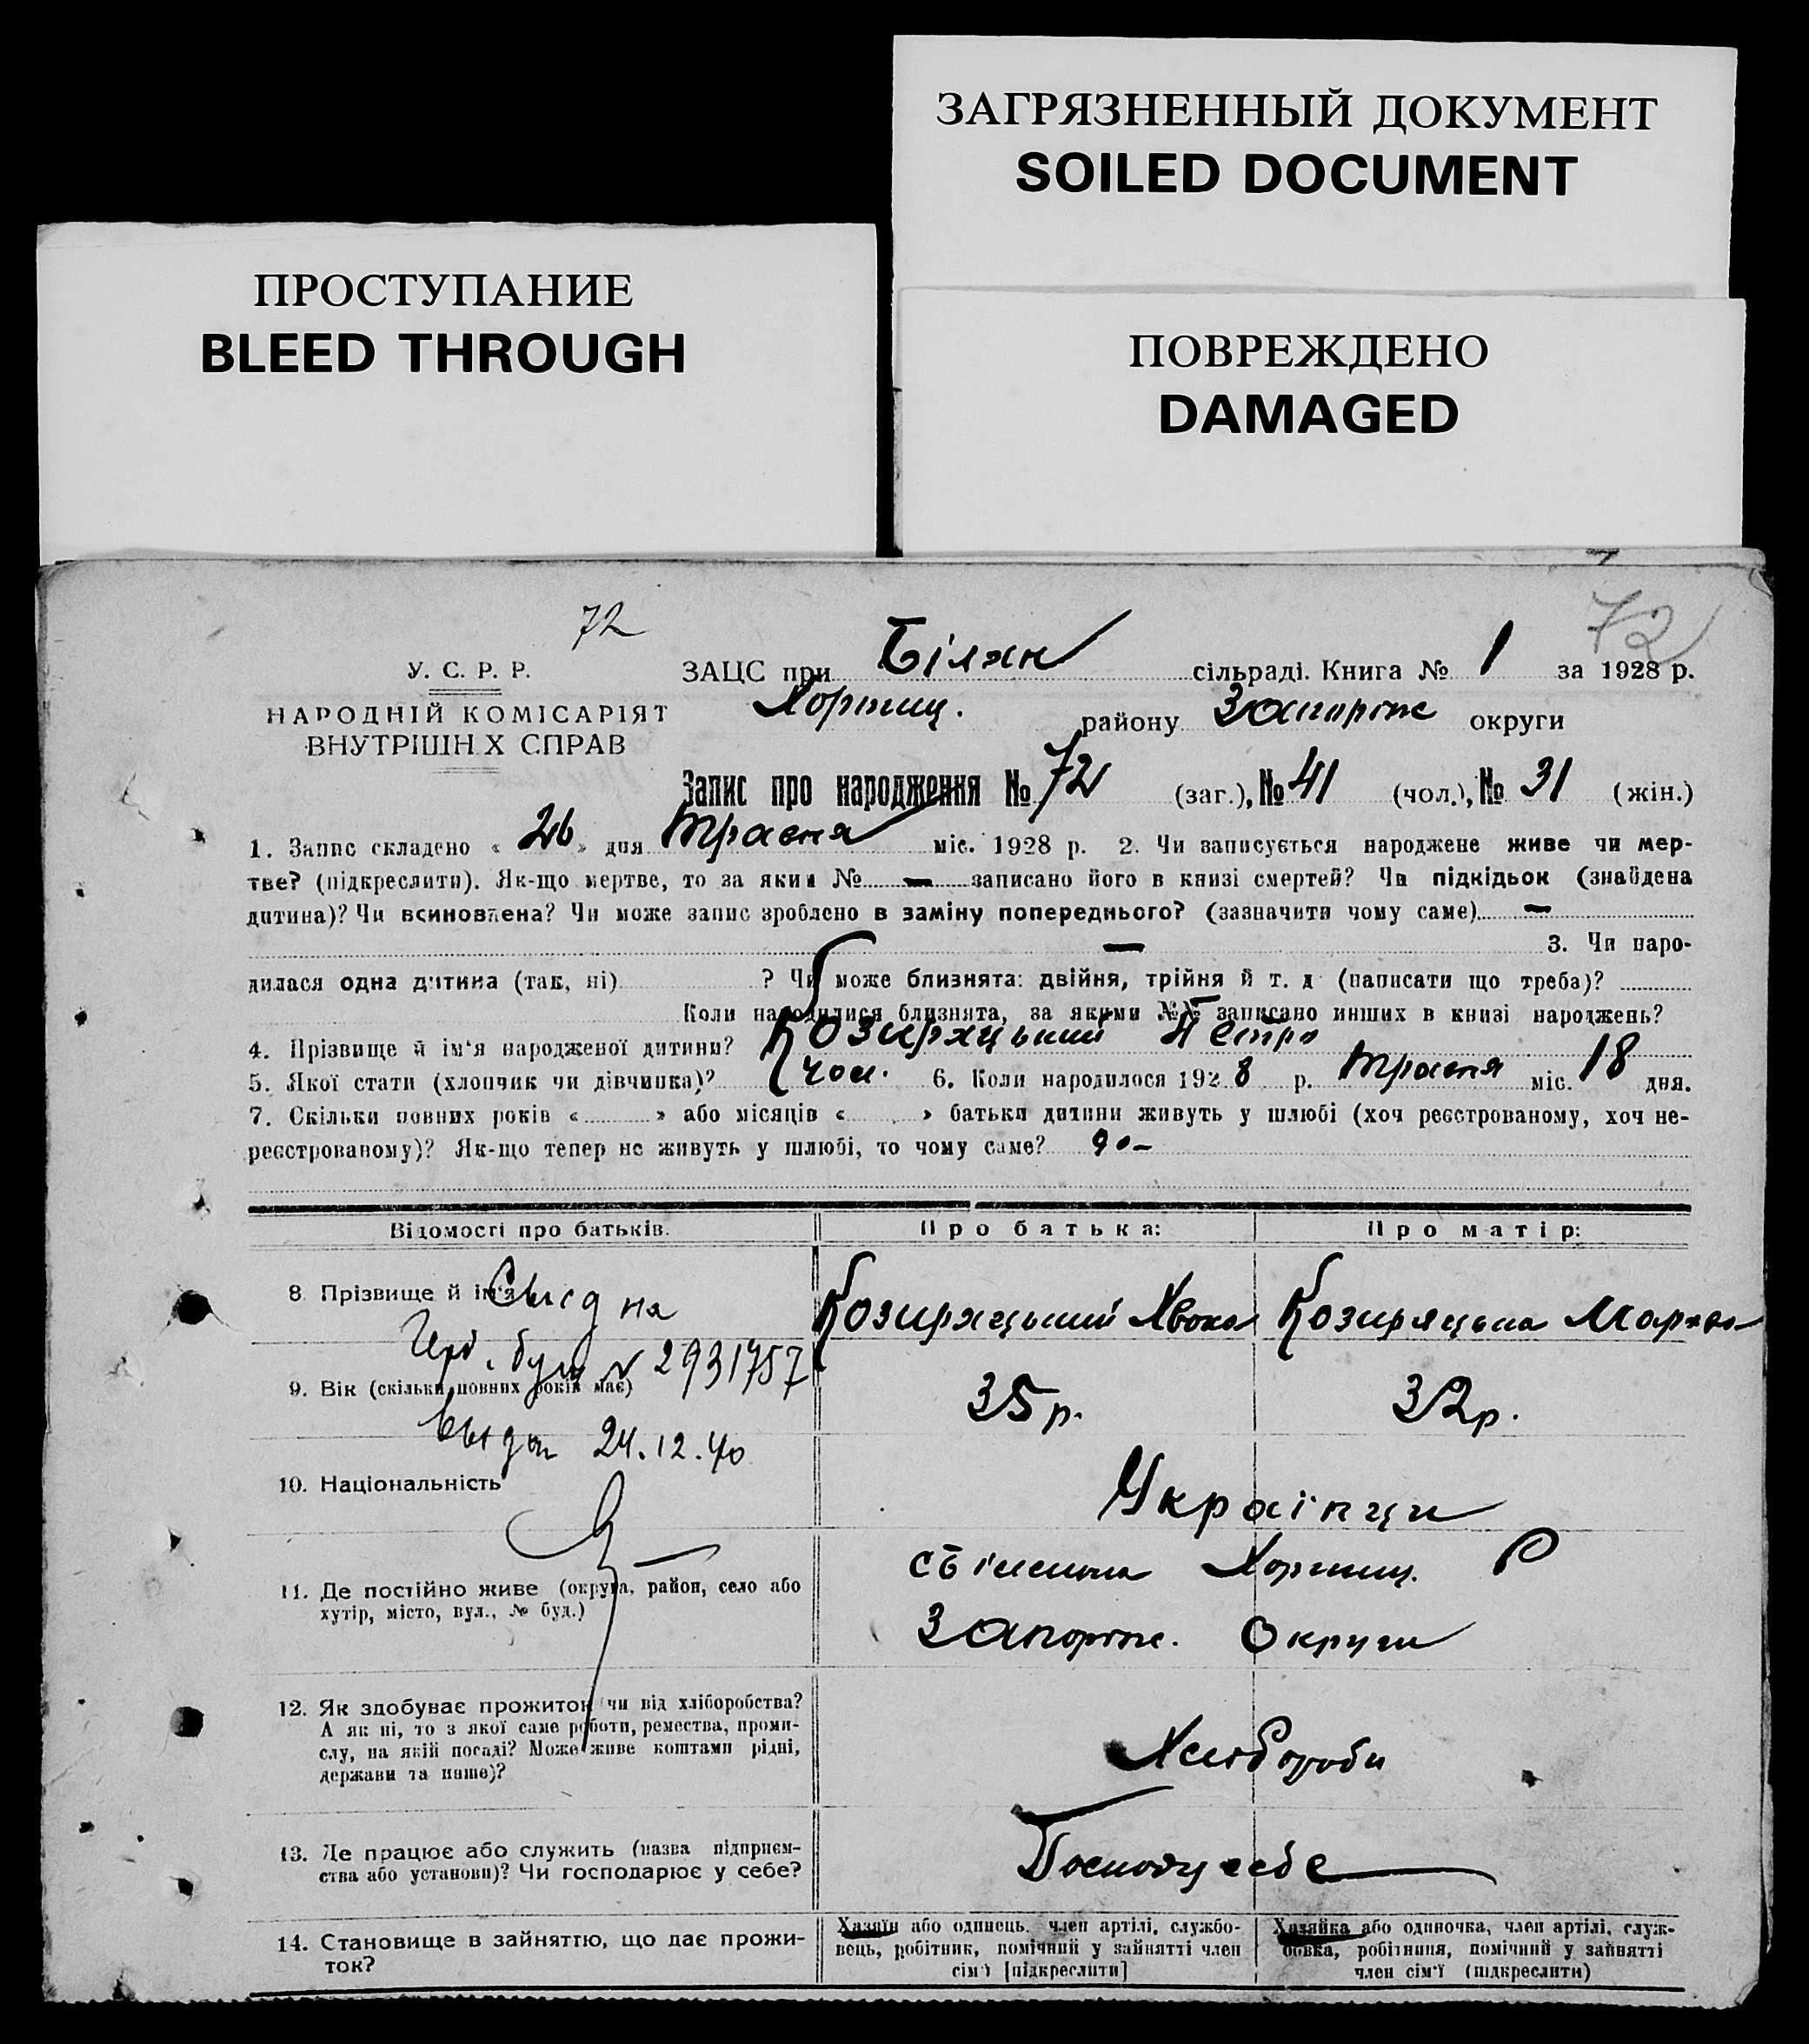 ЗАГРЯЗНЕННЫЙ ДОКУМЕНТ
SOILED DOCUMENT
ПРОСТУПАНИЕ
BLEED THROUGH
ПОВРЕЖДЕНО
DAMAGED
72
72
У. С. Р. Р.
НАРОДНІЙ КОМІСАРІЯТ
ВНУТРІШН Х СПРАВ
ЗАЦС при Білян сільраді. Книга № 1 за 1928 р.
Хортиц. району Запоріж округи
Запис про народження № 72 (заг.), № 41 (чол.), № 31 (жін.)
1. Запис складено « 26 » дня Травня міс. 1928 р. 2. Чи записується народжене живе чи мер-
тве? (підкреслити). Як-що мертве, то за яким № — записано його в книзі смертей? Чи підкідьок (знайдена
дитина)? Чи всиновлена? Чи може запис зроблено в заміну попереднього? (зазначити чому саме) —
— 3. Чи наро-
дилася одна дитина (так, ні) ? Чи може близнята: двійня, трійня й т. д (написати що треба)?
Коли народилися близнята, за якими №№ записано инших в книзі народжень?
4. Прізвище й ім'я народженої дитини? Козиряцький Петро
5. Якої стати (хлопчик чи дівчинка)? чол. 6. Коли народилося 1928 р. Травня міс. 18 дня.
7. Скільки повних років « » або місяців « » батьки дитини живуть у шлюбі (хоч реєстрованому, хоч не-
реєстрованому)? Як-що тепер не живуть у шлюбі, то чому саме?
Відомості про батьків. Про батька: Про матір:
8. Прізвище й ім'я Козиряцький Козиряцька
2931757
9. Вік (скільки повних років має) 35 р. 32 р.
24.12.40
10. Національність Українци
11. Де постійно живе (округа, район, село або
хутір, місто, вул., № буд.) Хортиц. Р
Запоріж. Округи
12. Як здобуває прожиток чи від хліборобства?
А як ні, то з якої саме роботи, ремества, проми-
слу, на якій посаді? Може живе коштами рідні,
держави та инше)? Хлібороби
13. Де працює або служить (назва підприєм-
ства або установи)? Чи господарює у себе?
14. Становище в зайняттю, що дає прожи-
ток?
Хазяїн або одинець, член артілі, службо-
вець, робітник, помічний у зайнятті член
сім'ї [підкреслити]
Хазяйка або одиночка, член артілі, служ-
бовка, робітниця, помічний у зайнятті
член сім'ї (підкреслити)